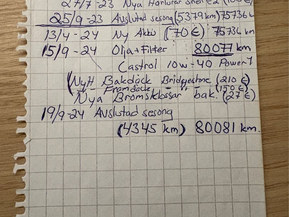 25/9-23 Avslutad sesong (5379 km) 75736 km
13/4-24 Ny Akku (70 €) 75736 km
15/9-24 Olja + Filter 80077 km
Castrol 10w-40 Power 1
(Nytt Bakdäck Bridgestone (210 €)
Framdäck (150 €)
Nya Bromsklossar bak. (27 €)
19/9-24 Avslutad sesong
(4345 km) 80081 km